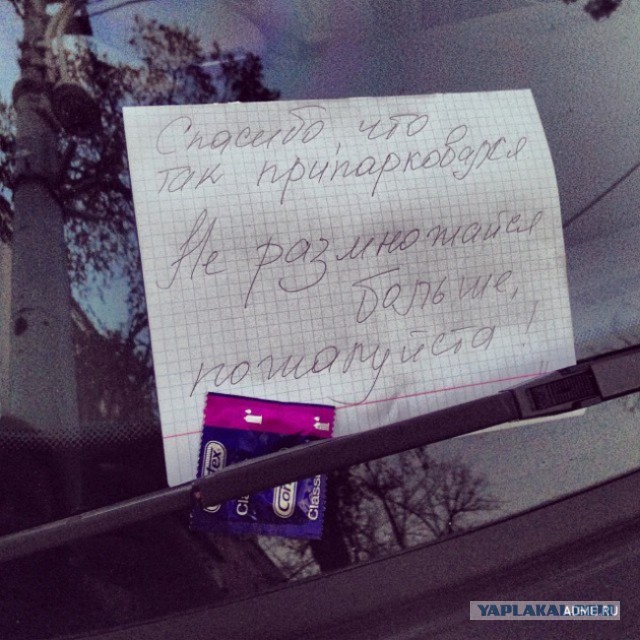 Спасибо, что
так припарковался
Не размножайся
больше,
пожалуйста!
Contex
Classic
YAPLAKAL
ADME.RU